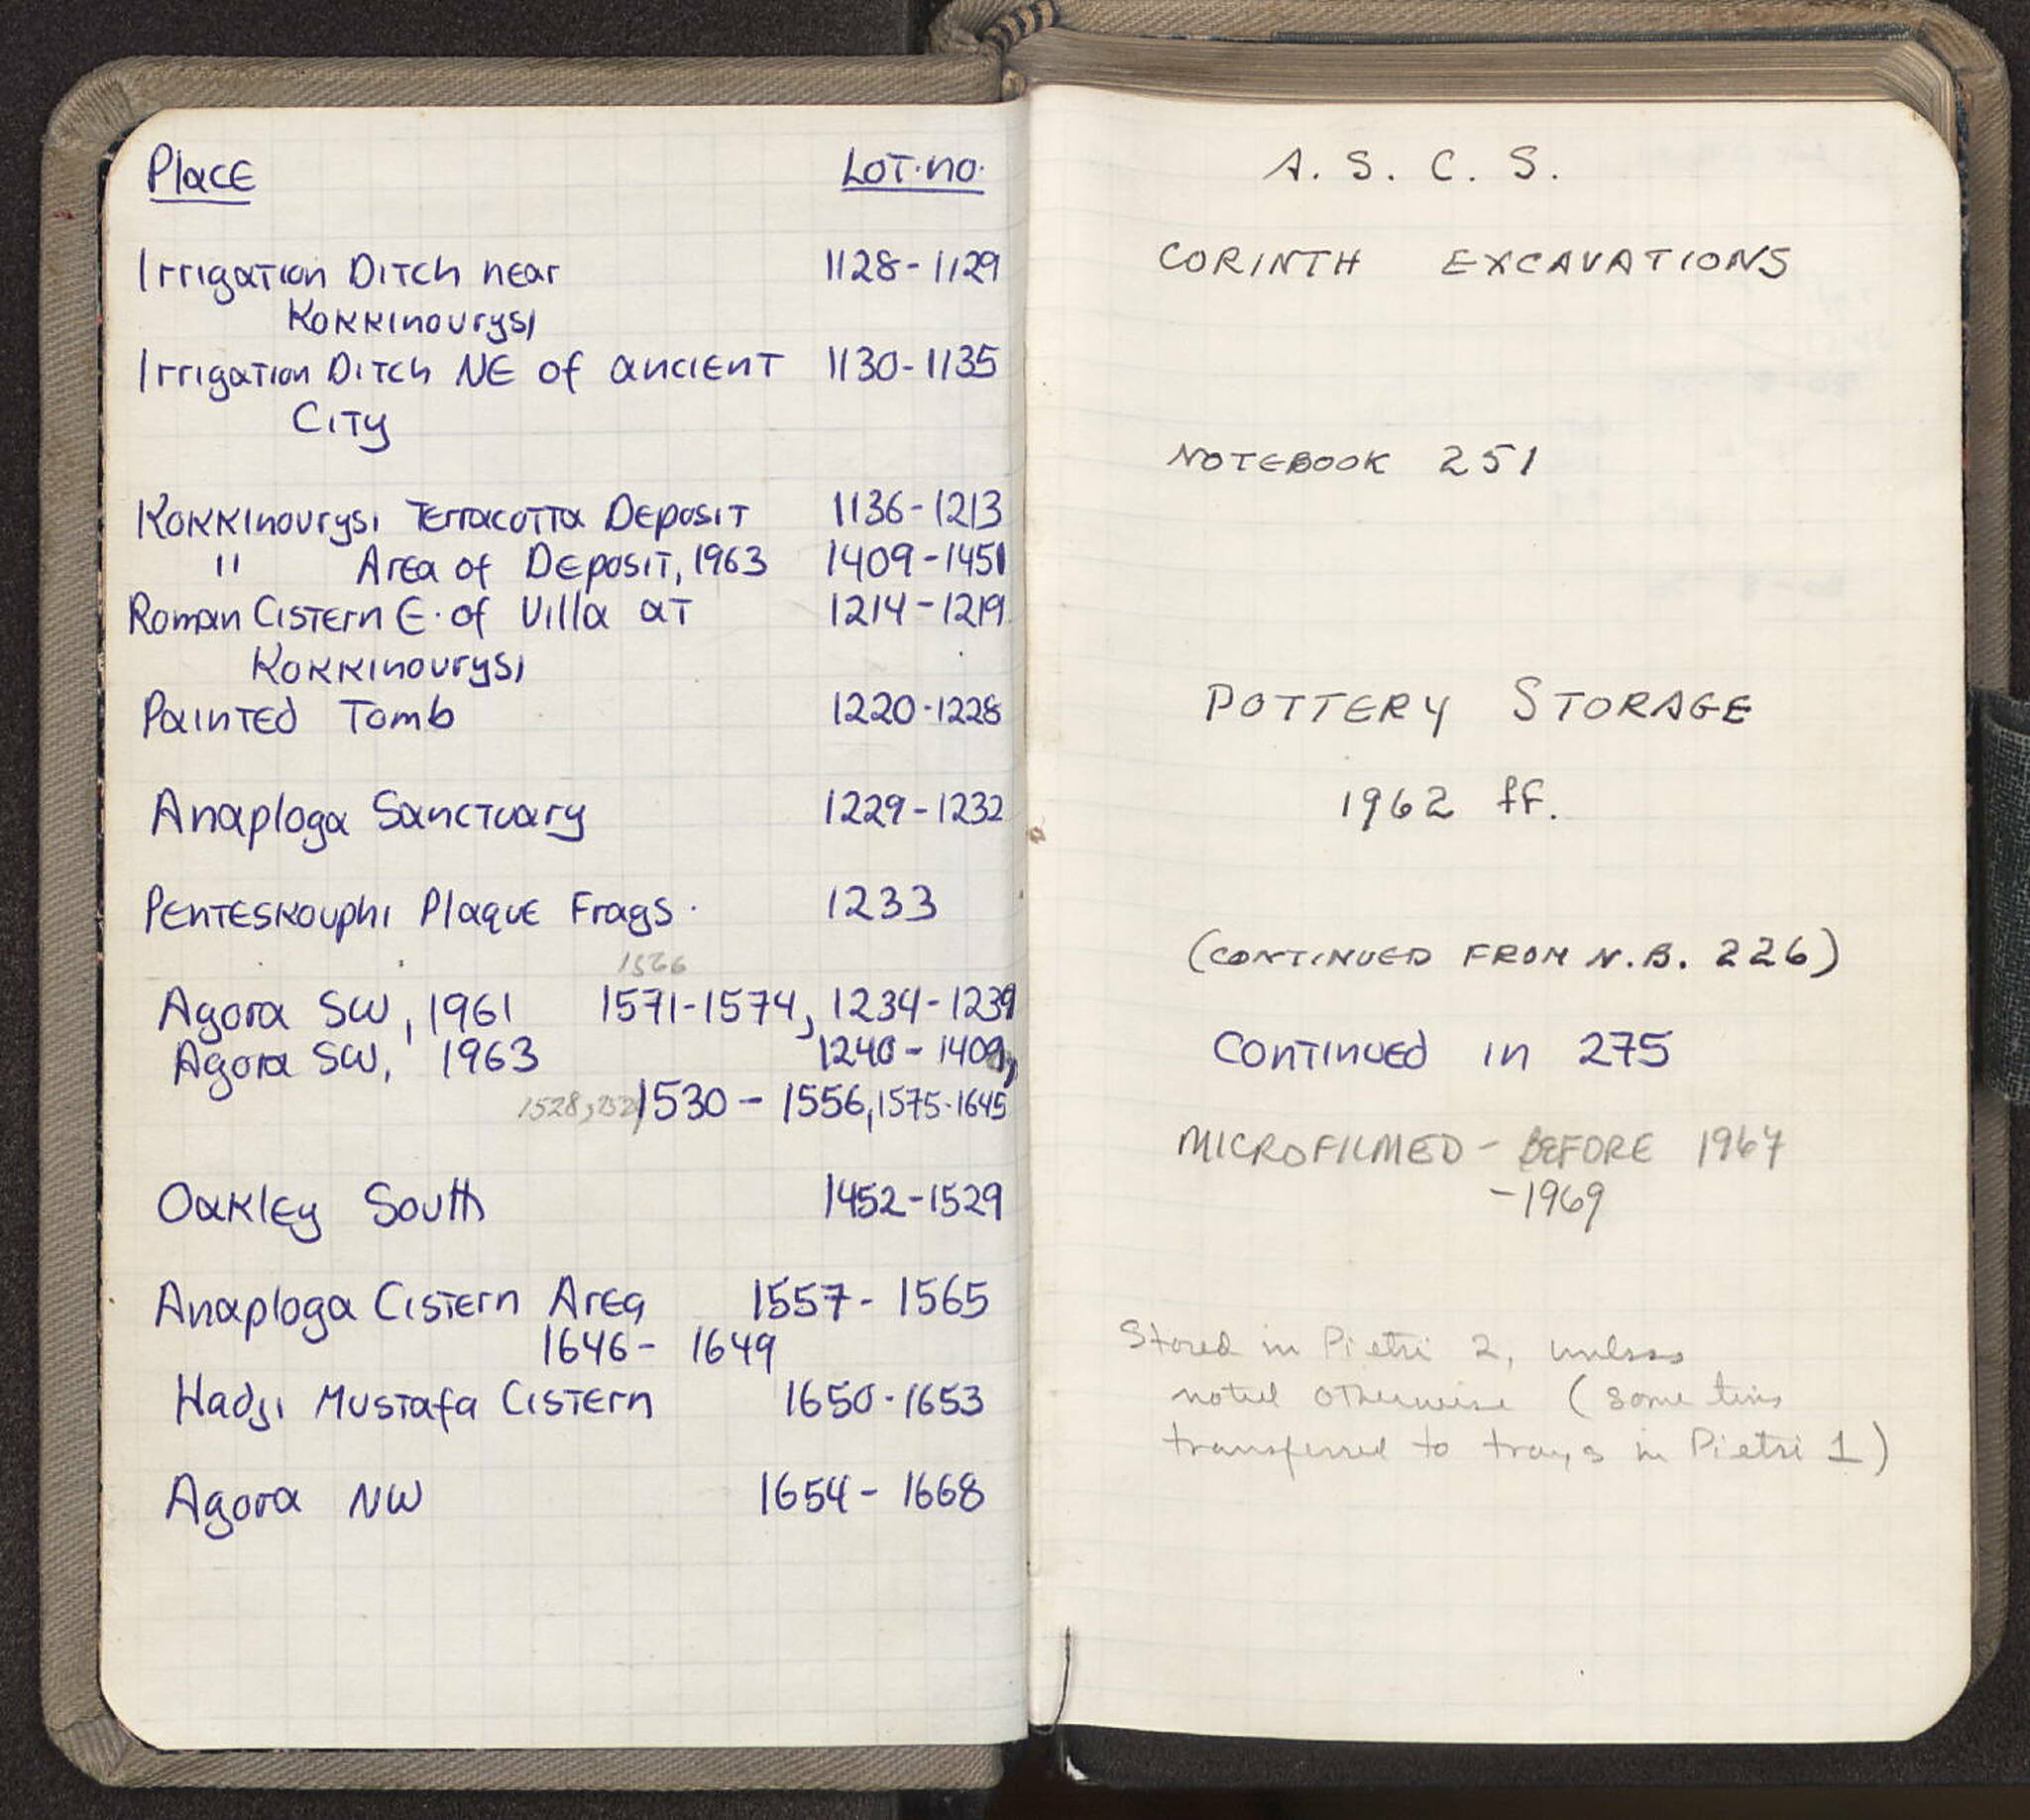 Place Lot. no.
Irrigation Ditch near 1128-1129
Kokkinovrysi
Irrigation Ditch NE of ancient 1130-1135
City
Kokkinovrysi Terracotta Deposit 1136-1213
" Area of Deposit, 1963 1409-1451
Roman Cistern E. of Villa at 1214-1219
Kokkinovrysi
Painted Tomb 1220-1228
Anaploga Sanctuary 1229-1232
Penteskouphi Plaque Frags. 1233
1566
Agora SW, 1961 1571-1574, 1234-1239
Agora SW, 1963 1240-1409,
1528, 1530 - 1556, 1575-1645
Oakley South 1452-1529
Anaploga Cistern Area 1557- 1565
1646- 1649
Hadji Mustafa Cistern 1650-1653
Agora NW 1654- 1668
A. S. C. S.
CORINTH EXCAVATIONS
NOTEBOOK 251
POTTERY STORAGE
1962 ff.
(CONTINUED FROM N.B. 226)
Continued in 275
MICROFILMED - BEFORE 1967
-1969
Stored in Pietri 2, unless
noted otherwise (some tins
transferred to trays in Pietri 1)